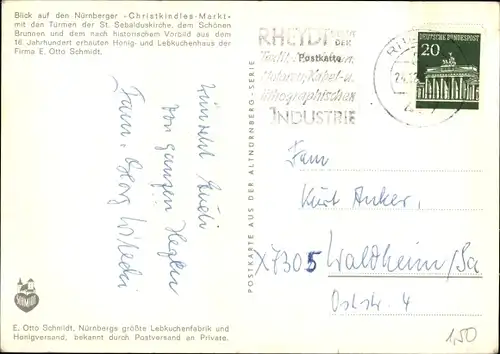 Blick auf den Nürnberger »Christkindles-Markt«
mit den Türmen der St. Sebalduskirche, dem Schönen
Brunnen und dem nach historischem Vorbild aus dem
16. Jahrhundert erbauten Honig- und Lebkuchenhaus der
Firma E. Otto Schmidt.
wünscht Euch
von ganzem Herzen
Fam. Georg
SCHMIDT
E. Otto Schmidt, Nürnbergs größte Lebkuchenfabrik und
Honigversand, bekannt durch Postversand an Private.
POSTKARTE AUS DER ALTNÜRNBERG-SERIE
RHEYDT
DER
Postkarte
Kabel-u.
INDUSTRIE
DEUTSCHE BUNDESPOST
20
Fam
Kurt Anker,
X7305 Waldheim/Sa
Oststr. 4
1,50